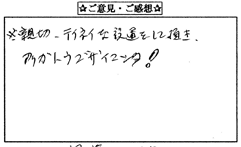 ☆ご意見・ご感想☆
※親切、テイネイな設置をして頂き、
アリガトウゴザイマシタ!